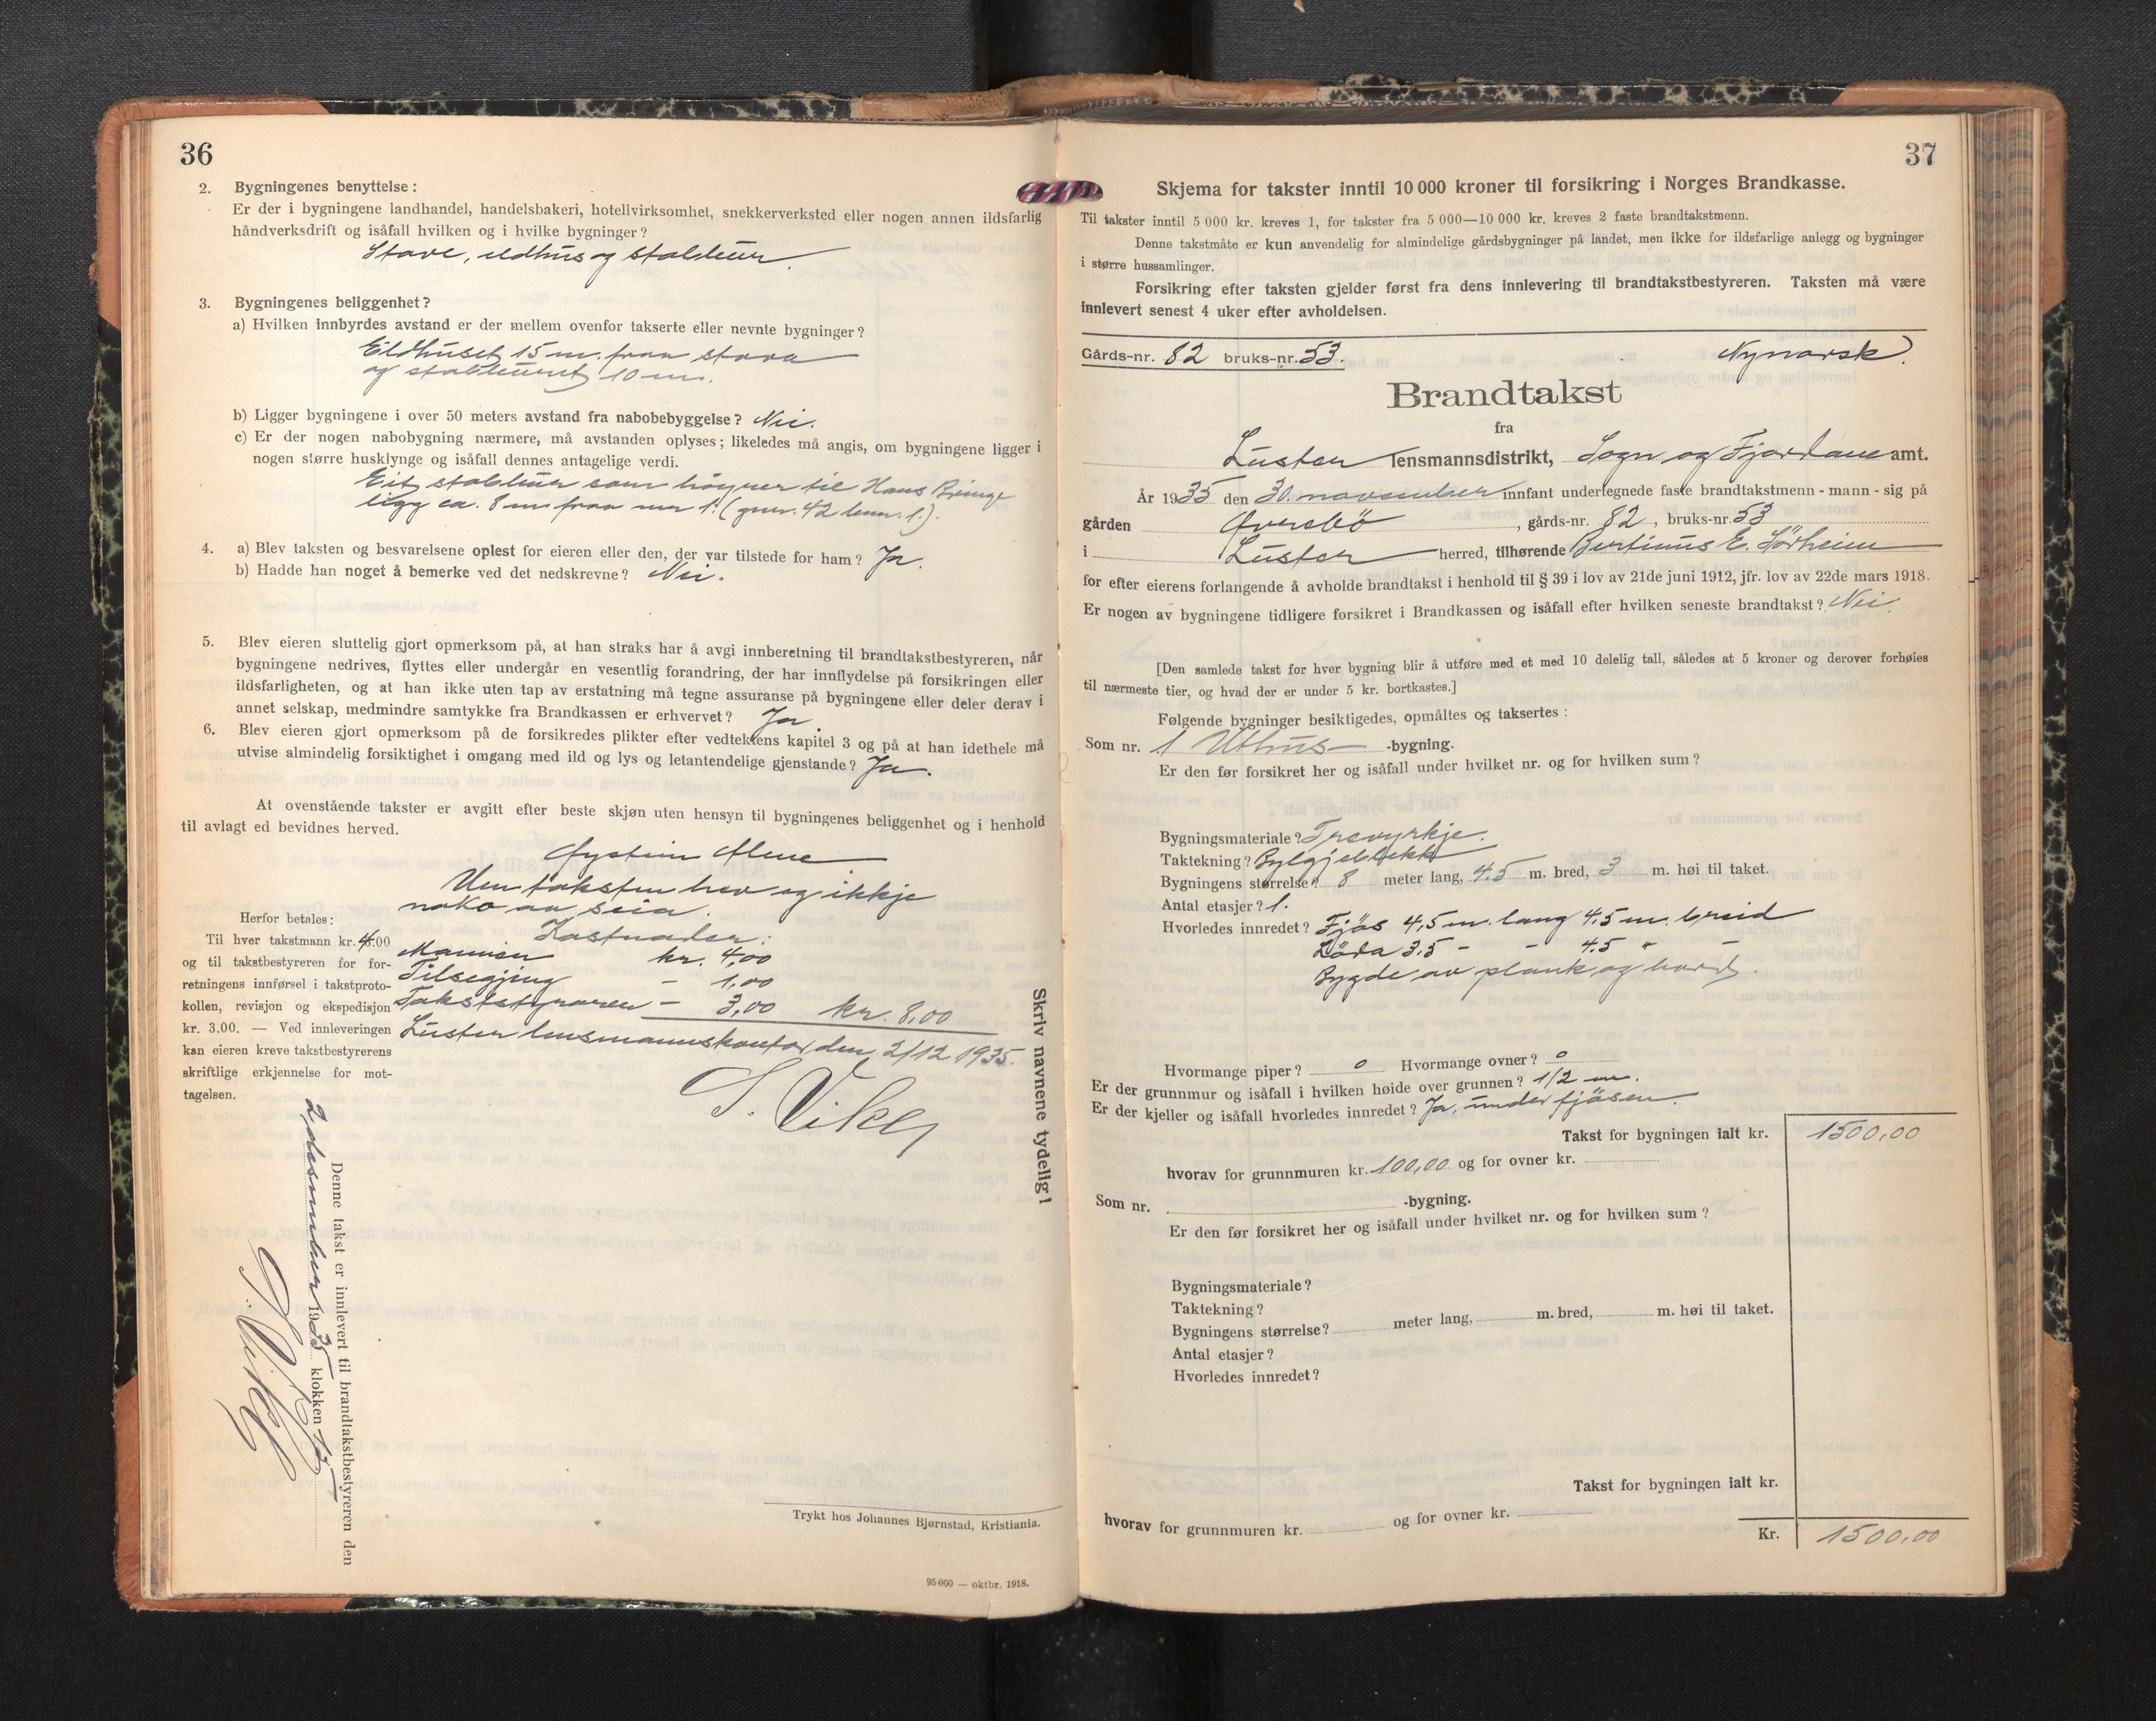 36
2. Bygningenes benyttelse:
Er der i bygningene landhandel, handelsbakeri, hotellvirksomhet, snekkerverksted eller nogen annen ildsfarlig
håndverksdrift og isåfall hvilken og i hvilke bygninger?
Stove, eldhus og stabbur.
3. Bygningenes beliggenhet?
a) Hvilken innbyrdes avstand er der mellem ovenfor takserte eller nevnte bygninger?
Eldhuset 15 m. fraa stova
og stabburet 10 m.
b) Ligger bygningene i over 50 meters avstand fra nabobebyggelse? Nei.
c) Er der nogen nabobygning nærmere, må avstanden oplyses; likeledes må angis, om bygningene ligger i
nogen større husklynge og isåfall dennes antagelige verdi.
Eit stabbur som höyrer til Hans
ligg ca. 8 m fraa nr 1. (gnr. 42 bnr. 1.).
4. a) Blev taksten og besvarelsene oplest for eieren eller den, der var tilstede for ham? Ja.
b) Hadde han noget å bemerke ved det nedskrevne? Nei.
5. Blev eieren sluttelig gjort opmerksom på, at han straks har å avgi innberetning til brandtakstbestyreren, når
bygningene nedrives, flyttes eller undergår en vesentlig forandring, der har innflydelse på forsikringen eller
ildsfarligheten, og at han ikke uten tap av erstatning må tegne assuranse på bygningene eller deler derav i
annet selskap, medmindre samtykke fra Brandkassen er erhvervet? Ja
6. Blev eieren gjort opmerksom på de forsikredes plikter efter vedtektens kapitel 3 og på at han idethele må
utvise almindelig forsiktighet i omgang med ild og lys og letantendelige gjenstande? Ja.
At ovenstående takster er avgitt efter beste skjøn uten hensyn til bygningenes beliggenhet og i henhold
til avlagt ed bevidnes herved.
Øystein
Um taksten hev eg ikkje
noko aa seia.
Herfor betales:
Til hver takstmann kr. 4.00
og til takstbestyreren for for-
retningens innførsel i takstproto-
kollen, revisjon og ekspedisjon
kr. 3.00. — Ved innleveringen
kan eieren kreve takstbestyrerens
skriftlige erkjennelse for mot-
tagelsen.
Kostnader:
Mannen kr. 4,00
Tilsegjing - 1,00
Takststyraren - 3,00 kr. 8,00
Luster lensmannskontor, den 2/12 1935.
S. Vikey
Skriv navnene tydelig!
Denne takst er innlevert til brandtakstbestyreren den
2 desember 1935 klokken
S. Vikey
Trykt hos Johannes Bjørnstad, Kristiania.
95 000 — oktbr. 1918.
37
Skjema for takster inntil 10 000 kroner til forsikring i Norges Brandkasse.
Til takster inntil 5 000 kr. kreves 1, for takster fra 5 000—10 000 kr. kreves 2 faste brandtakstmenn.
Denne takstmåte er kun anvendelig for almindelige gårdsbygninger på landet, men ikke for ildsfarlige anlegg og bygninger
i større hussamlinger.
Forsikring efter taksten gjelder først fra dens innlevering til brandtakstbestyreren. Taksten må være
innlevert senest 4 uker efter avholdelsen.
Gårds-nr. 82 bruks-nr. 53. Nynorsk.
Brandtakst
fra
Luster lensmannsdistrikt, Sogn og Fjordane amt.
År 1935 den 30. november innfant undertegnede faste brandtakstmenn - mann - sig på
gården Øvrebö, gårds-nr. 82, bruks-nr. 53
i Luster herred, tilhørende Bertinus E. Sörheim
for efter eierens forlangende å avholde brandtakst i henhold til § 39 i lov av 21de juni 1912, jfr. lov av 22de mars 1918.
Er nogen av bygningene tidligere forsikret i Brandkassen og isåfall efter hvilken seneste brandtakst? Nei.
[Den samlede takst for hver bygning blir å utføre med et med 10 delelig tall, således at 5 kroner og derover forhøies
til nærmeste tier, og hvad der er under 5 kr. bortkastes.]
Følgende bygninger besiktigedes, opmåltes og taksertes:
Som nr. 1 Uthus -bygning.
Er den før forsikret her og isåfall under hvilket nr. og for hvilken sum?
Bygningsmateriale? Trevyrkje.
Taktekning? Bylgjeblekk
Bygningens størrelse? 8 meter lang, 4.5 m. bred, 3 m. høi til taket.
Antal etasjer? 1.
Hvorledes innredet? Fjös 4,5 m. lang 4.5 m. breid
Löda 3.5 - - 4.5 " -
Bygde av plank og bord.
Hvormange piper? 0 Hvormange ovner? 0
Er der grunnmur og isåfall i hvilken høide over grunnen? 1/2 m.
Er der kjeller og isåfall hvorledes innredet? Ja, under fjösen.
Takst for bygningen ialt kr. 1500,00
hvorav for grunnmuren kr. 100,00 og for ovner kr.
Som nr. -bygning.
Er den før forsikret her og isåfall under hvilket nr. og for hvilken sum?
Bygningsmateriale?
Taktekning?
Bygningens størrelse? meter lang, m. bred, m. høi til taket.
Antal etasjer?
Hvorledes innredet?
Takst for bygningen ialt kr.
hvorav for grunnmuren kr. og for ovner kr.
Kr. 1500,00